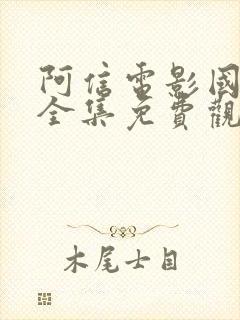 阿信電影國
全集免費觀
木尾士目